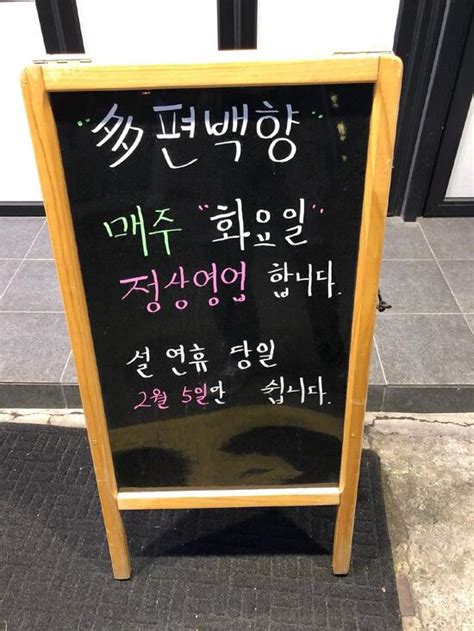 "多편백향"
매주 "화요일"
정상영업 합니다.
설 연휴 당일
2월 5일만 쉽니다.